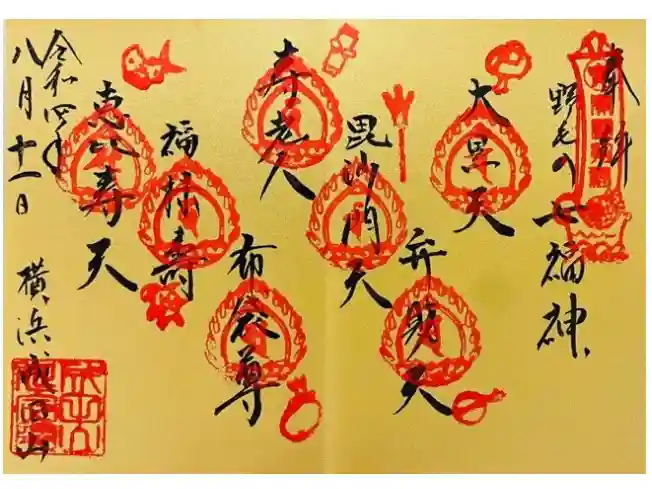 奉拝
野毛の七福神
大黒天
弁財天
毘沙門天
寿老人
布袋尊
福禄寿
恵比寿天
令和四年
八月十一日
横浜成田山